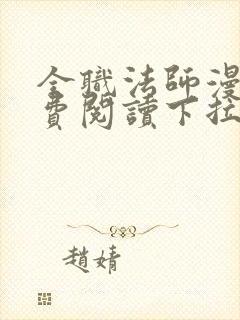 全職法師漫
費閱讀下拉
趙婧